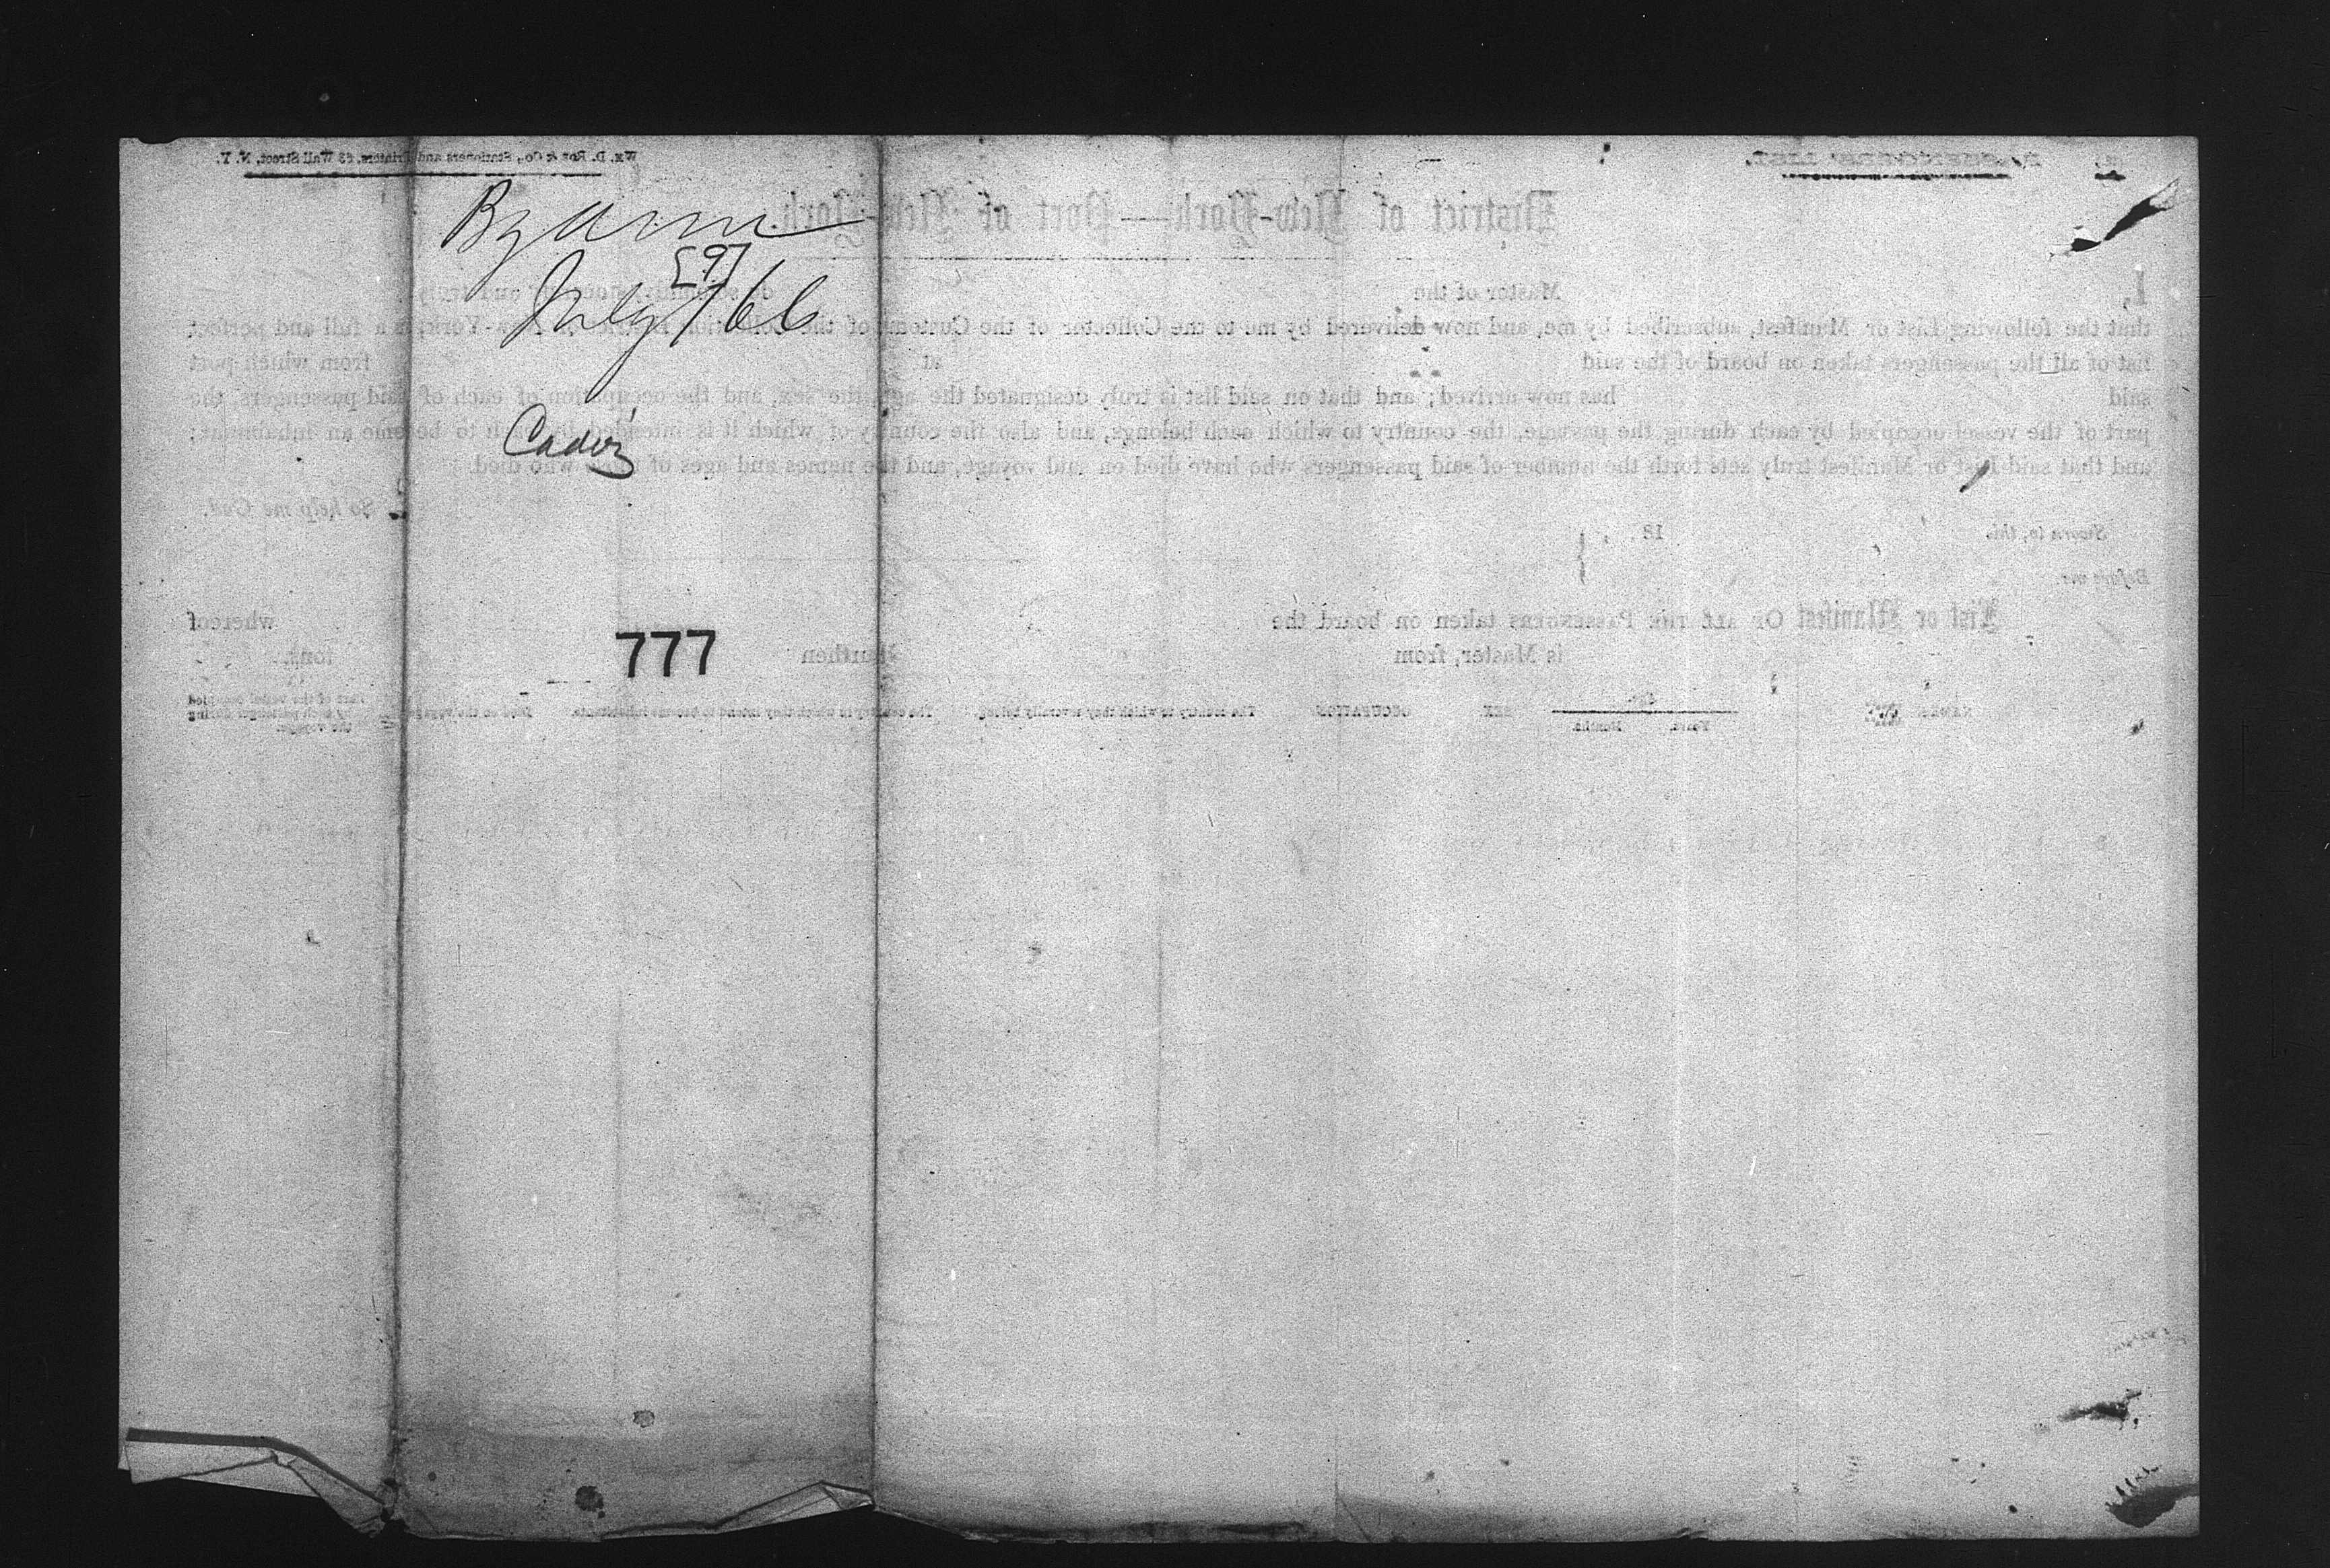 Bg Ann
[9]
July / 66
Cadiz
777
Wm. D. Roe & Co., Stationers and Printers, 63 Wall Street, N. Y.
PASSENGERS' LIST.
District of New-York—Port of New-York.
I, Master of the do solemnly, and truly
that the following List or Manifest, subscribed by me, and now delivered by me to the Collector of the Customs of the Collection District of New-York, is a full and perfect
list of all the passengers taken on board of the said at from which port
said has now arrived; and that on said list is truly designated the age, the sex, and the occupation of each of said passengers, the
part of the vessel occupied by each during the passage, the country to which each belongs, and also the country of which it is intended by each to become an inhabitant;
and that said List or Manifest truly sets forth the number of said passengers who have died on said voyage, and the names and ages of those who died.
So help me God.
Sworn to, this 18
Before me
List or Manifest OF ALL THE PASSENGERS taken on board the whereof
is Master, from burthen tons.
NAMES Age SEX OCCUPATION The country to which they severally belong. The country in which they intend to become inhabitants. Died on the voyage. Part of the vessel occupied by each passenger during the voyage.
Years. Months.